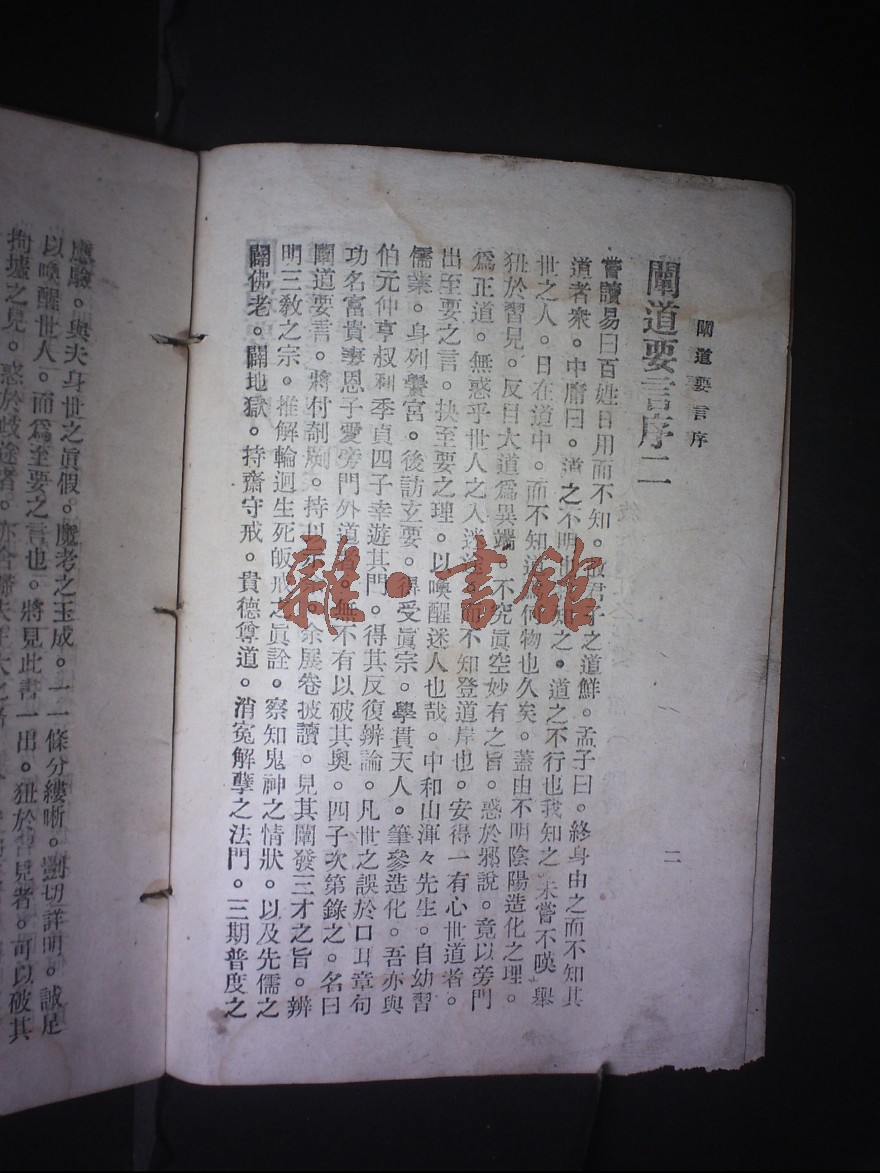 闡道要言序
闡道要言序二
嘗讀易曰百姓日用而不知。故君子之道鮮。孟子曰。終身由之而不知其
道者衆。中庸曰。道之不明也我知之。道之不行也我知之 未嘗不嘆 舉
世之人。日在道中。而不知道爲何物也久矣。蓋由不明陰陽造化之理。
狃於習見。反目大道爲異端。不究眞空妙有之旨。惑於邪說。竟以旁門
爲正道。無惑乎世人之入迷 而不知登道岸也。安得一有心世道者。
出至要之言。抉至要之理。以喚醒迷人也哉。中和山渾々先生。自幼習
儒業。身列黌宮。後訪玄要。得受眞宗。學貫天人。筆參造化。吾亦與
伯元仲亨叔利季貞四子幸遊其門。得其反復辨論。凡世之誤於口耳章句
功名富貴妻恩子愛旁門外道者。無不有以破其奥。四子次第錄之。名曰
闡道要言。將付剞劂。持以示余。余展卷披讀。見其闡發三才之旨。辨
明三敎之宗。推解輪迴生死皈戒之眞詮。察知鬼神之情狀。以及先儒之
闢佛老。闢地獄。持齋守戒。貴德尊道。消寃解孽之法門。三期普度之
二
應驗。與夫身世之眞假。魔考之玉成。一一條分縷晰。剴切詳明。誠足
以喚醒世人。而爲至要之言也。將見此書一出。狃於習見者。可以破其
拘墟之見。惑於歧途者。亦
雜·書館